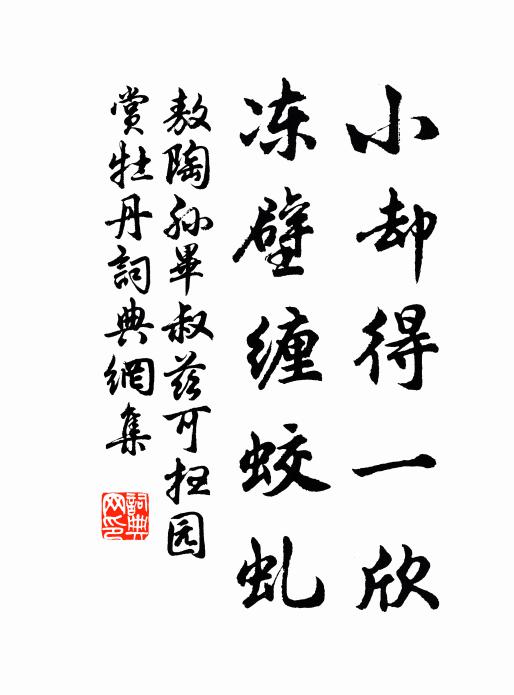 小却得一欣
冻壁缠蛟虬
敖陶孙毕叔兹可扫园
賞牡丹詞典網集
詞典网印